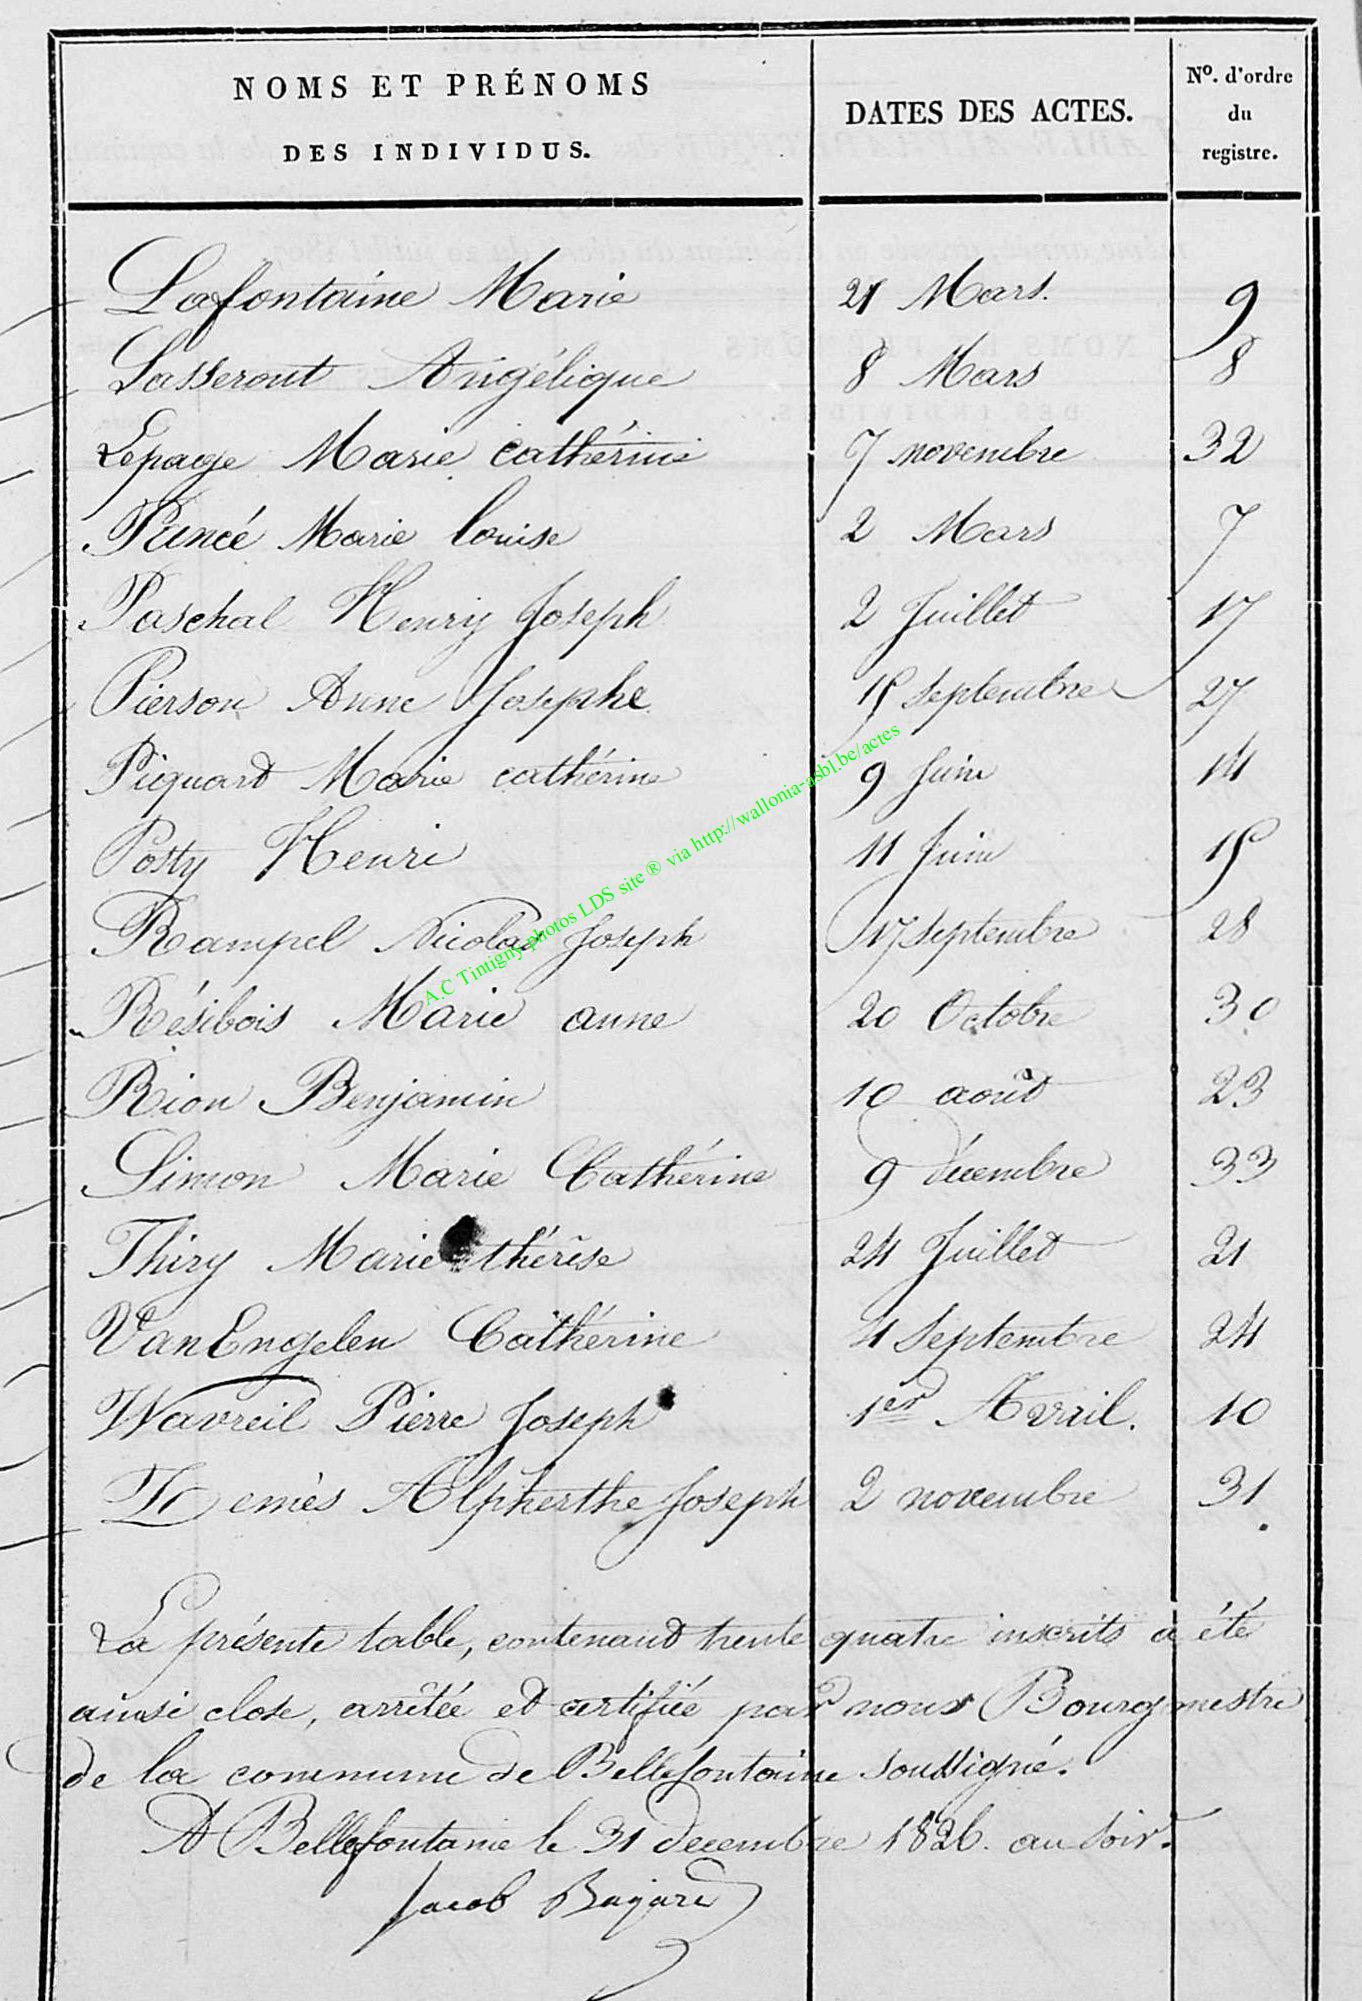 NOMS ET PRÉNOMS
DES INDIVIDUS.
DATES DES ACTES.
Nº. d'ordre
du
registre.
Lafontaine Marie 21 Mars. 9
Lasseront Angélique 8 Mars 8
Lepage Marie Cathérine 7 novembre 32
Pancé Marie louise 2 Mars 7
Paschal Henry Joseph 2 Juillet 17
Pierson Anne Josephe 15 Septembre 27
Piquard Marie cathérine 9 Juin 14
Posty Henri 11 Juin 15
Rampel Nicolas Joseph 17 septembre 28
Résibois Marie anne 20 Octobre 30
Rion Benjamin 10 août 23
Simon Marie Cathérine 9 décembre 33
Thiry Marie thérèse 24 Juillet 21
VanEngelen Cathérine 4 Septembre 24
Wavreil Pierre Joseph 1er Avril. 10
Joseph 2 novembre 31
La présente table, contenant trente quatre inscrits a été
ainsi close, arrêtée et certifiée par nous Bourgmestre
de la commune de Bellefontaine soussigné.
A Bellefontaine le 31 decembre 1826. au soir.
Jacob Bajard
A.C Tintigny photos LDS site ® via http://wallonia-asbl.be/actes